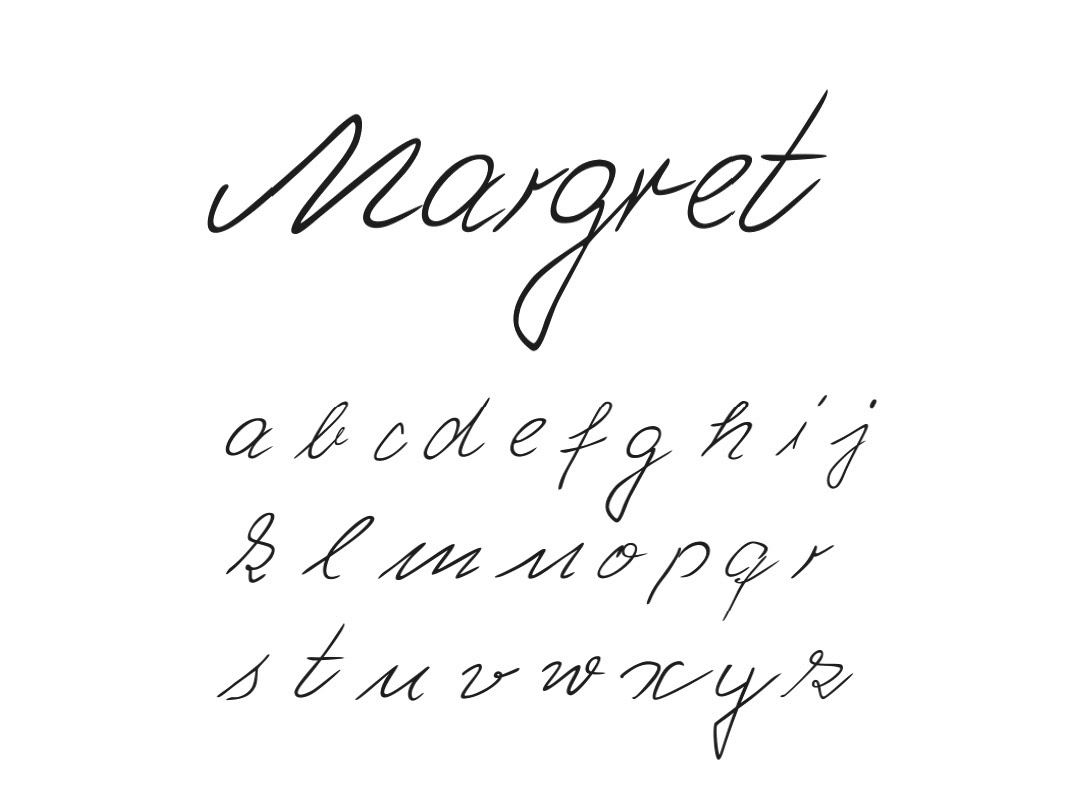 Margret
a b c d e f g h i j
k l m n o p q r
s t u v w x y z